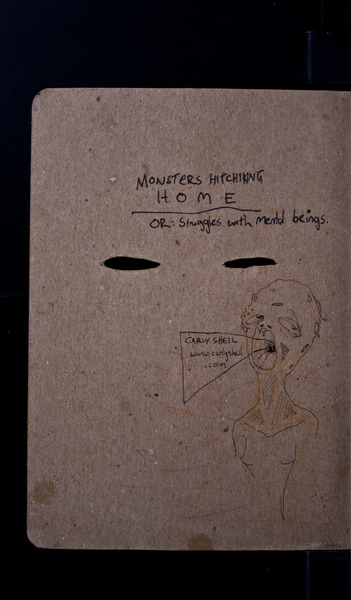 MONSTERS HITCHIKING
HOME
OR: Struggles with mental beings.
CARLY SHEIL
www.carlysheil
.com